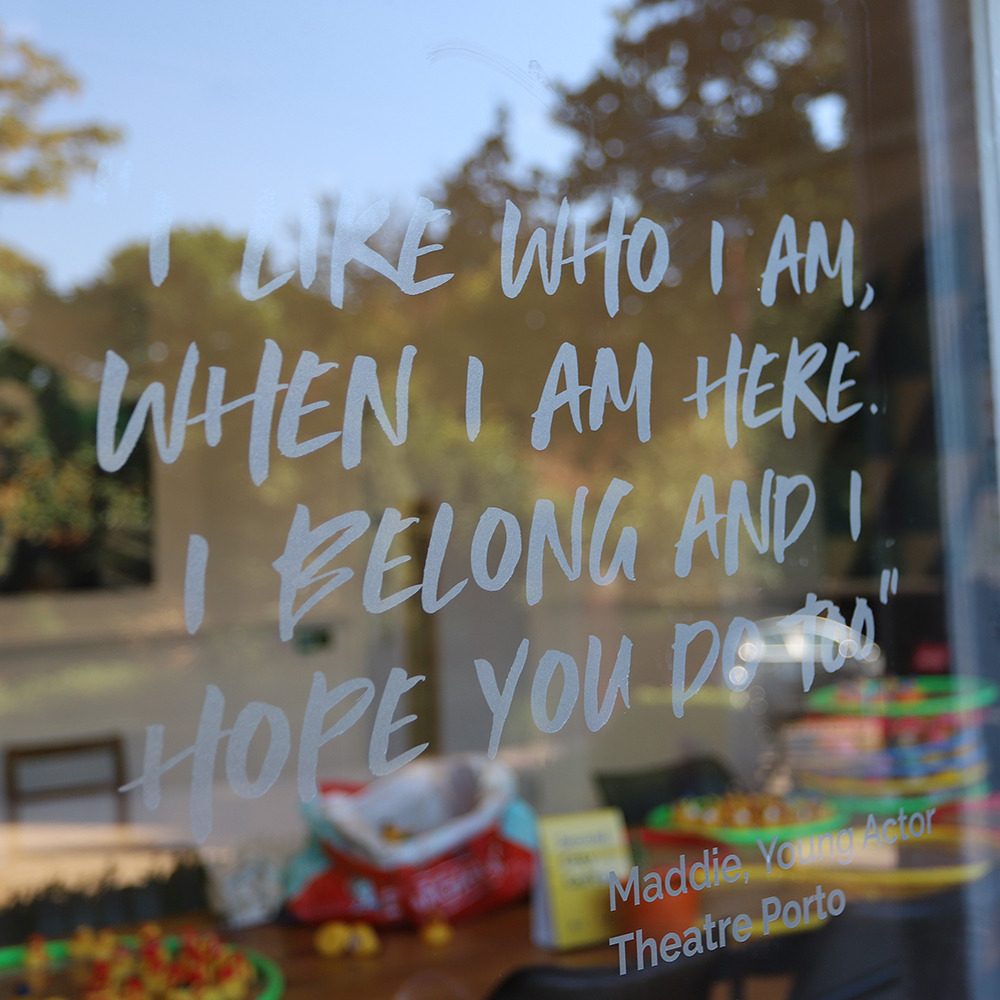 I LIKE WHO I AM,
WHEN I AM HERE.
I BELONG AND I
HOPE YOU DO TOO"
Maddie, Young Actor
Theatre Porto